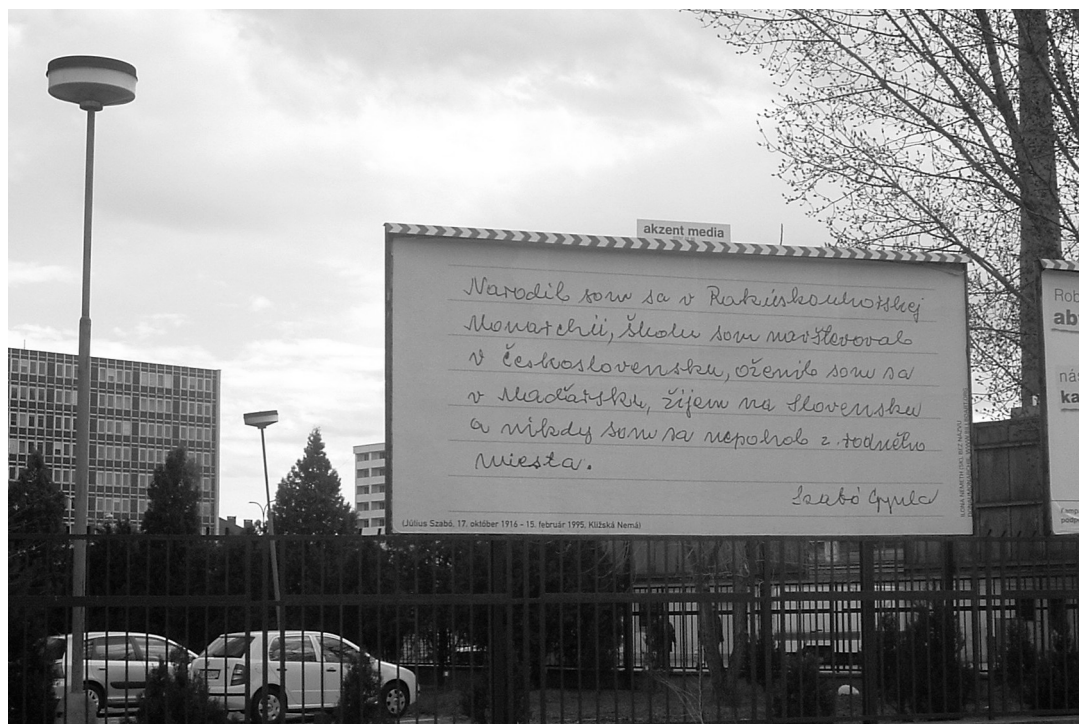 akzent media
Narodil som sa v Rakúskouhorskej
Monarchii, školu som navštevoval
v Československu, oženil som sa
v Maďarsku, žijem na Slovensku
a nikdy som sa nepohol z rodného
miesta.
Szabó Gyula
(Július Szabó, 17. október 1916 - 15. február 1995, Kližská Nemá)
ILONA NÉMETH (SK), BEZ NÁZVU
Rob
ab
nás
ka